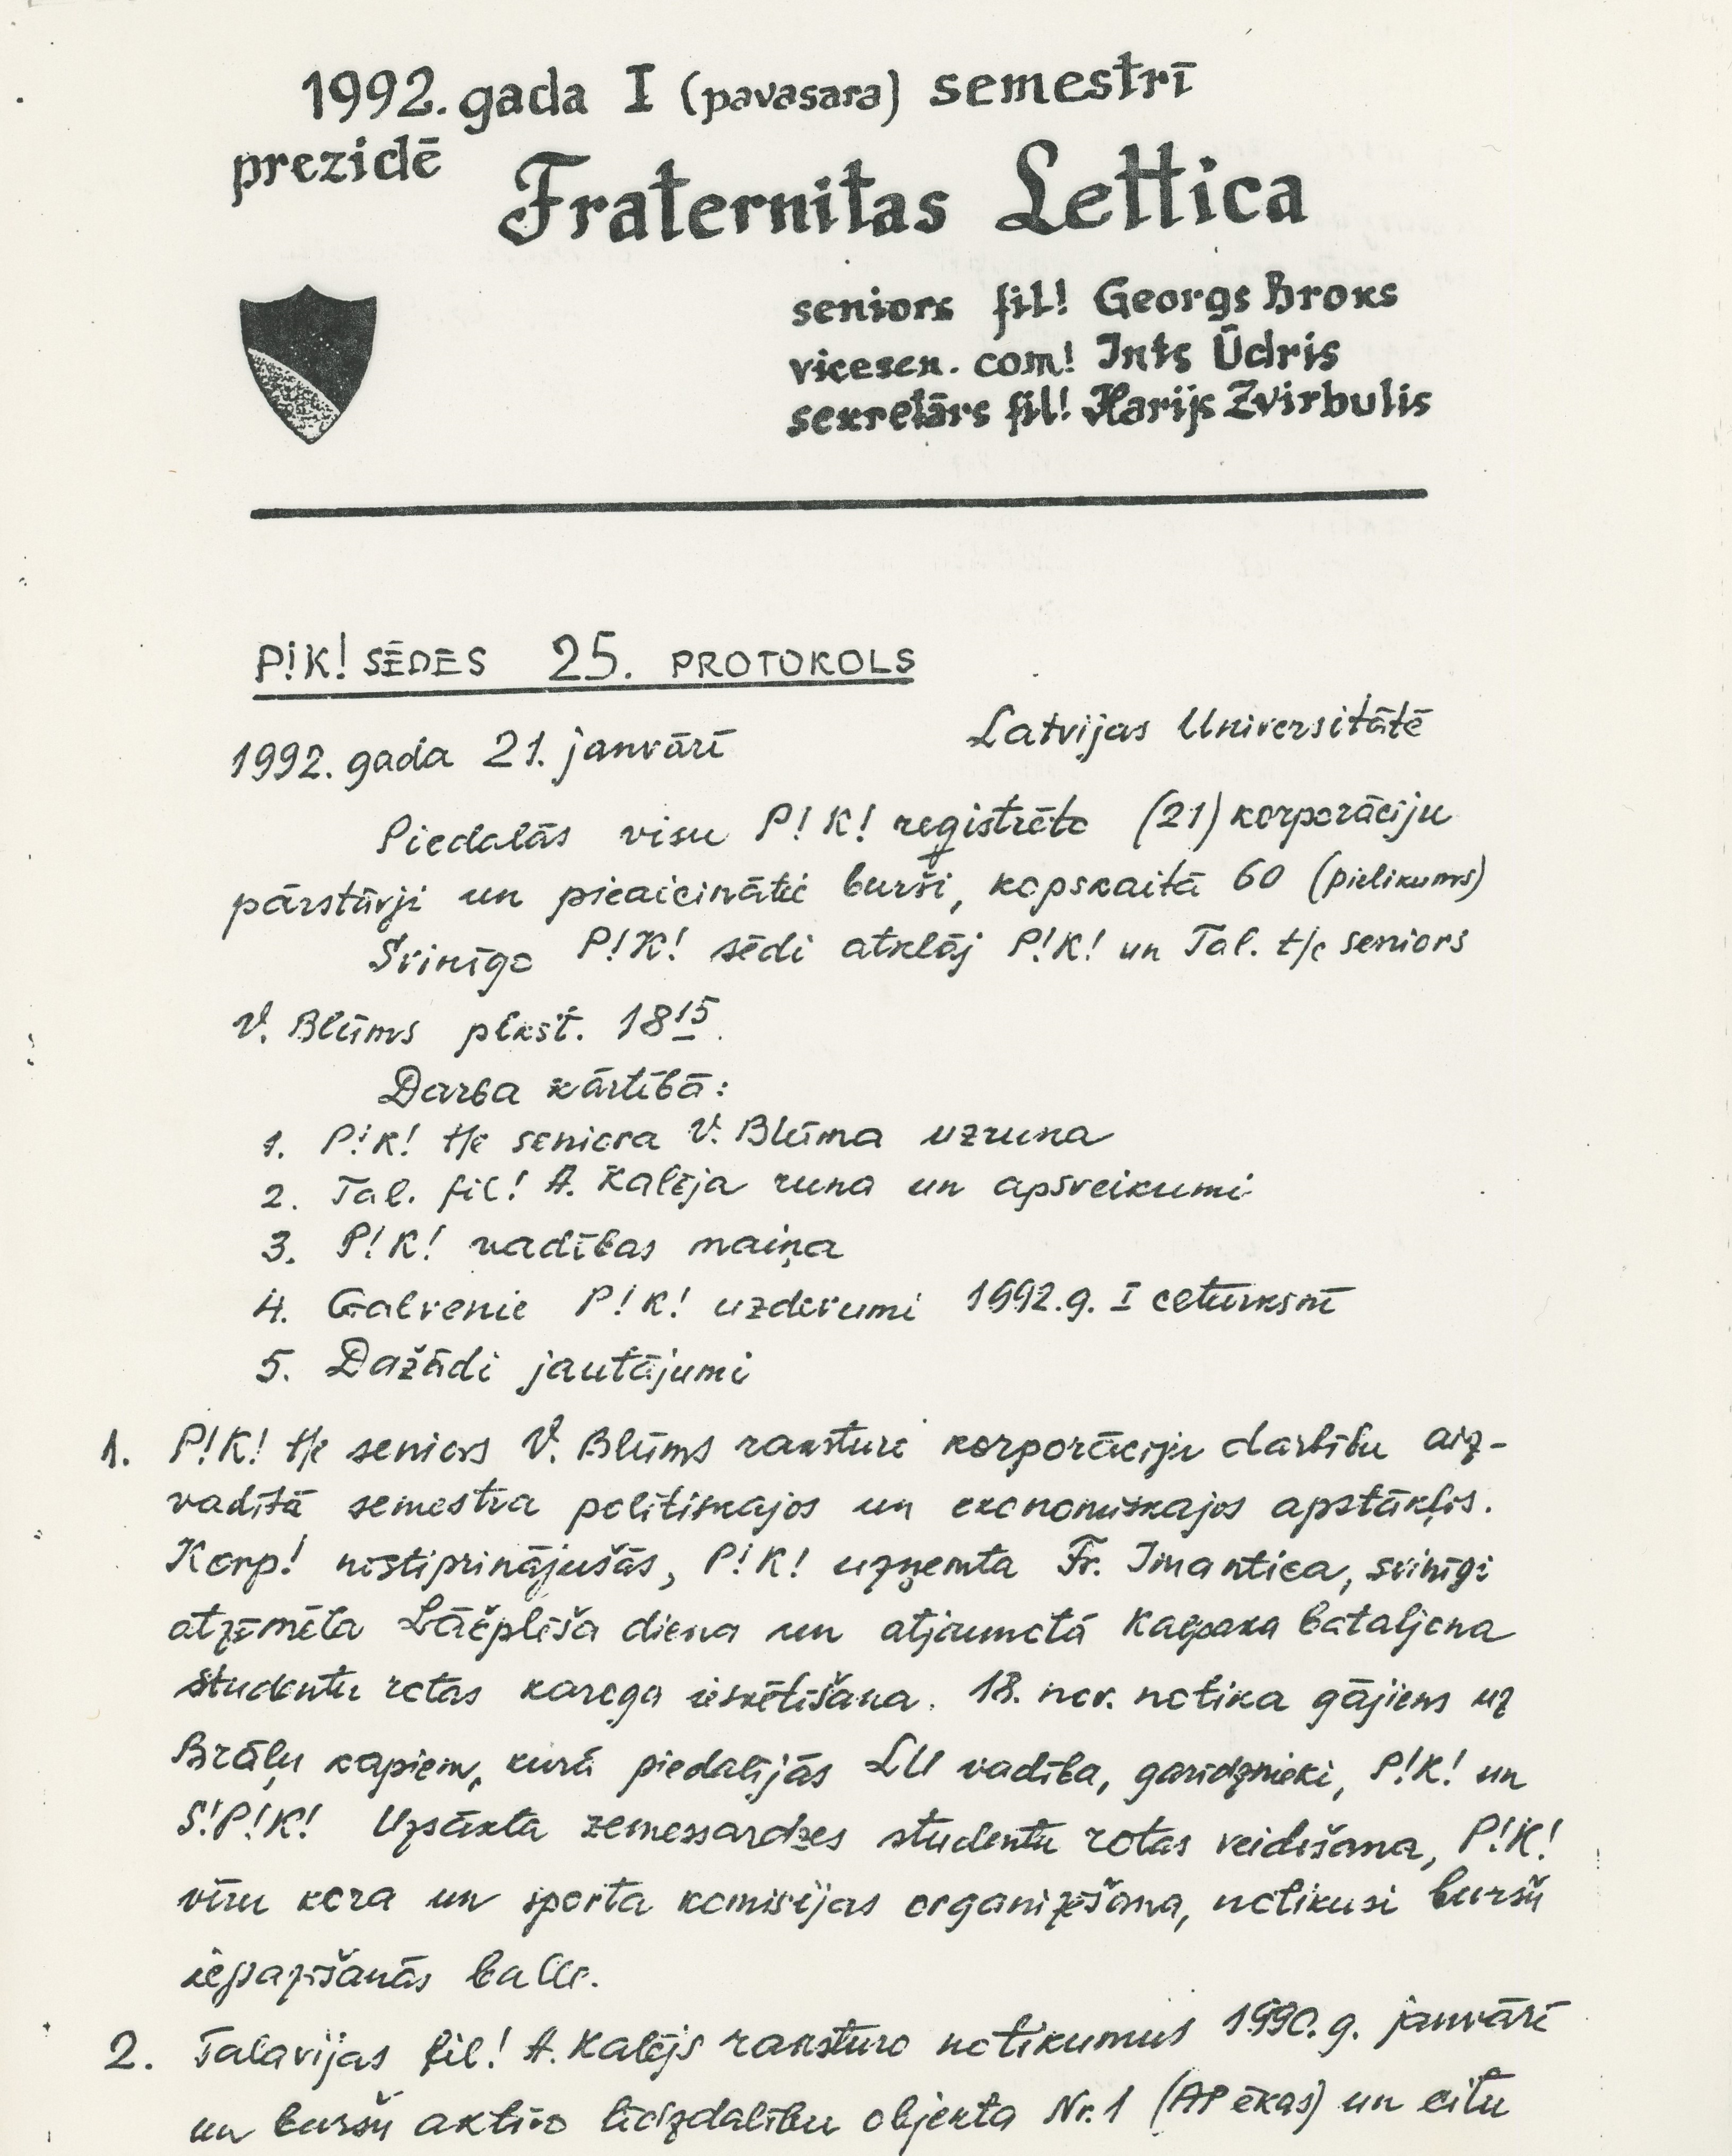 1992. gada I (pavasara) semestrī
prezidē
Fraternitas Lettica
seniors fil! Georgs Broks
vicesen. com! Ints Ūdris
sekretārs fil! Harijs Zvirbulis
P!K! SĒDES 25. PROTOKOLS
1992. gada 21. janvārī Latvijas Universitātē
Piedalās visu P!K! reģistrēto (21) korporāciju
pārstāvji un pieaicinātie burši, kopskaitā 60 (pielikums)
Svinīgo P!K! sēdi atklāj P!K! un Tal. t/c seniors
V. Blūms plkst. 18 15.
Darba kārtībā:
1. P!K! t/c seniora V. Blūma uzruna
2. Tal. fil! A. Kalēja runa un apsveikumi
3. P!K! vadības maiņa
4. Galvenie P!K! uzdevumi 1992.g. I ceturksnī
5. Dažādi jautājumi
1. P!K! t/c seniors V. Blūms raksturo korporāciju darbību aiz-
vadītā semestra politiskajos un ekonomiskajos apstākļos.
Korp! nostiprinājušās, P!K! uzņemta Fr. Imantica, svinīgi
atzīmēta Lāčplēša diena un atjaunotā Kalpaka bataljona
studentu rotas karoga iesvētīšana. 18. nov. notika gājiens uz
Brāļu kapiem, kurā piedalījās LU vadība, garīdznieki, P!K! un
S!P!K! Uzsākta zemessardzes studentu rotas veidošana, P!K!
vīru kora un sporta komisijas organizēšana, notikusi buršu
iepazīšanās balle.
2. Talavijas fil! A. Kalējs raksturo notikumus 1990.g. janvārī
un buršu aktīvo līdzdalību objekta Nr.1 (AP ēkas) un citu